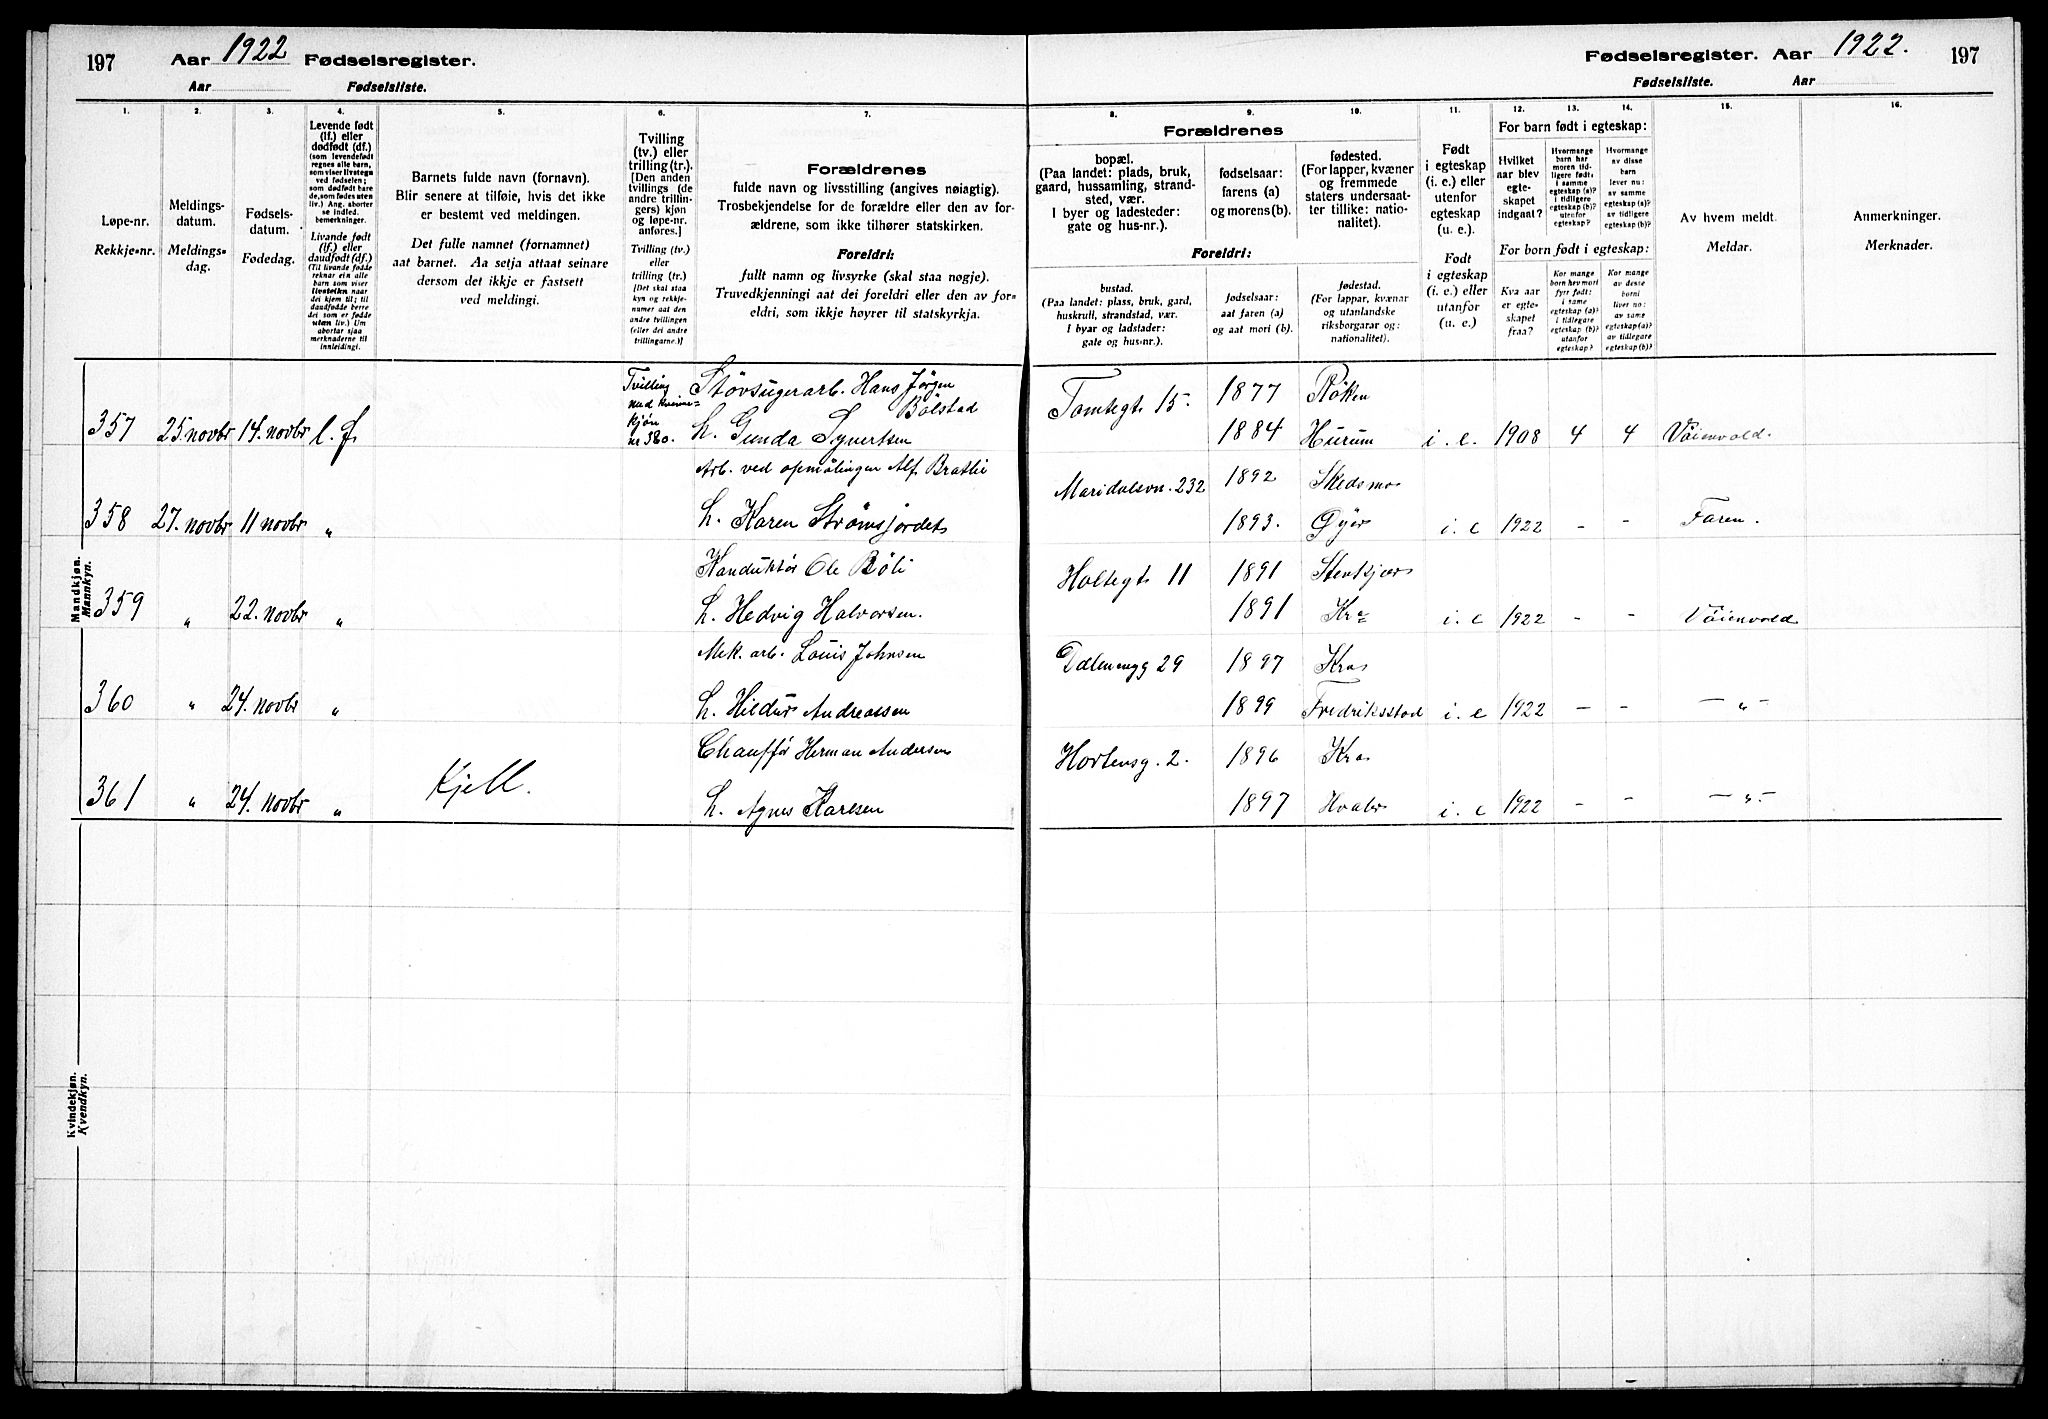 197 Aar 1922 Fødselsregister.
Aar Fødselsliste.
Fødselsregister. Aar 1922. 197
Fødselsliste. Aar
1. 2. 3. 4. 5. 6. 7. 8. 9. 10. 11. 12. 13. 14. 15. 16.
Løpe-nr.
Rekkje-nr.
Meldings-
datum.
Meldings-
dag.
Fødsels-
datum.
Fødedag.
Levende født
(lf.) eller
dødfødt (df.)
(som levendefødt
regnes alle barn,
som viser livstegn
ved fødselen;
som dødfødt bare
de, som fødes uten
liv.) Ang. aborter
se indled.
bemerkninger.
Livande født
(lf.) eller
daudfødt (df.)
(Til livande fødde
reknar ein alle
barn som viser
livsteikn naar
dei kjem til; til
daudfødde berre
dei som er fødde
utan liv.) Um
abortar sjaa
merknaderne til
innleidingi.
Barnets fulde navn (fornavn).
Blir senere at tilføie, hvis det ikke
er bestemt ved meldingen.
Det fulle namnet (fornamnet)
aat barnet. Aa setja attaat seinare
dersom det ikkje er fastsett
ved meldingi.
Tvilling
(tv.) eller
trilling (tr.).
[Den anden
tvillings (de
andre trillin-
gers) kjøn
og løpe-nr.
anføres.]
Tvilling (tv.)
eller
trilling (tr.)
[Det skal staa
kyn og rekkje-
numer aat den
andre tvillingen
(eller dei andre
trillingarne.)]
Forældrenes
fulde navn og livsstilling (angives nøiagtig).
Trosbekjendelse for de forældre eller den av for-
ældrene, som ikke tilhører statskirken.
Foreldri:
fullt namn og livsyrke (skal staa nøgje).
Truvedkjenningi aat dei foreldri eller den av for-
eldri, som ikkje høyrer til statskyrkja.
Forældrenes
bopæl.
(Paa landet: plads, bruk,
gaard, hussamling, strand-
sted, vær.
I byer og ladesteder:
gate og hus-nr.).
fødselsaar:
farens (a)
og morens (b).
fødested.
(For lapper, kvæner
og fremmede
staters undersaat-
ter tillike: natio-
nalitet).
Foreldri:
bustad.
(Paa landet: plass, bruk, gard,
huskrull, strandstad, vær.
I byar og ladstader:
gate og hus-nr.).
fødselsaar:
aat faren (a)
og aat mori (b).
fødestad.
(For lappar, kvænar
og utanlandske
riksborgarar og:
nationalitet).
Født
i egteskap
(i. e.) eller
utenfor
egteskap
(u. e.).
Født
i egteskap
(i. e.) eller
utanfor
(u. e.)
For barn født i egteskap:
Hvilket
aar blev
egte-
skapet
indgaat?
Hvormange
barn har
moren tid-
ligere født:
i samme
egteskap (a)?
i tidligere
egteskap (b)?
utenfor
egteskap?
Hvormange
av disse
barn
lever nu:
av samme
egteskap (a)?
av tidligere
egteskap (b)?
For born født i egteskap:
Kva aar
er egte-
skapet
fraa?
Kor mange
born hev mori
fyrr født:
i same
egteskap (a)?
i tidlegare
egteskap (b)?
utanfor
egteskap?
Kor mange
av desse
borni
livet no:
av same
egteskap (a)?
av tidlegare
egteskap (b)?
Av hvem meldt.
Meldar.
Anmerkninger.
Merknader.
Mandkjøn.
Mannkyn.
Tvilling
med kvinne-
kjøn
nr 380.
Støvsugerarb. Hans Jørgen
Bölstad
Tomtegt 15. 1877 Röken
357 25. novbr 14. novbr l. f. h. Gunda Syvertsen 1884 Hurum i. e. 1908 4 4 Vöienvold.
Arb. ved opmålingen Alf Bratlie Maridalsvn. 232 1892 Skedsmo
358 27. novbr 11 novbr " h. Karen Strömsjordet 1893. Øyer i. e 1922 - - Faren.
Konduktør Ole Böli Holtegt 11 1891 Stenkjær
359 " 22. novbr " h. Hedvig Halvorsen. 1891 Kra i. e 1922 - - Vöienvold
Mek. arb. Louis Johnsen Dælenengg 29 1897 Kra
360 " 24. novbr " h. Hildur Andreassen 1899 Fredriksstad i. e 1922 - - - " -
Chauffør Herman Andersen Hortensg. 2. 1896 Kra
361 " 24. novbr " Kjell. h. Agnes Karlsen 1897 Hvaler i. e 1922 - - - " -
Kvindekjøn.
Kvendkyn.